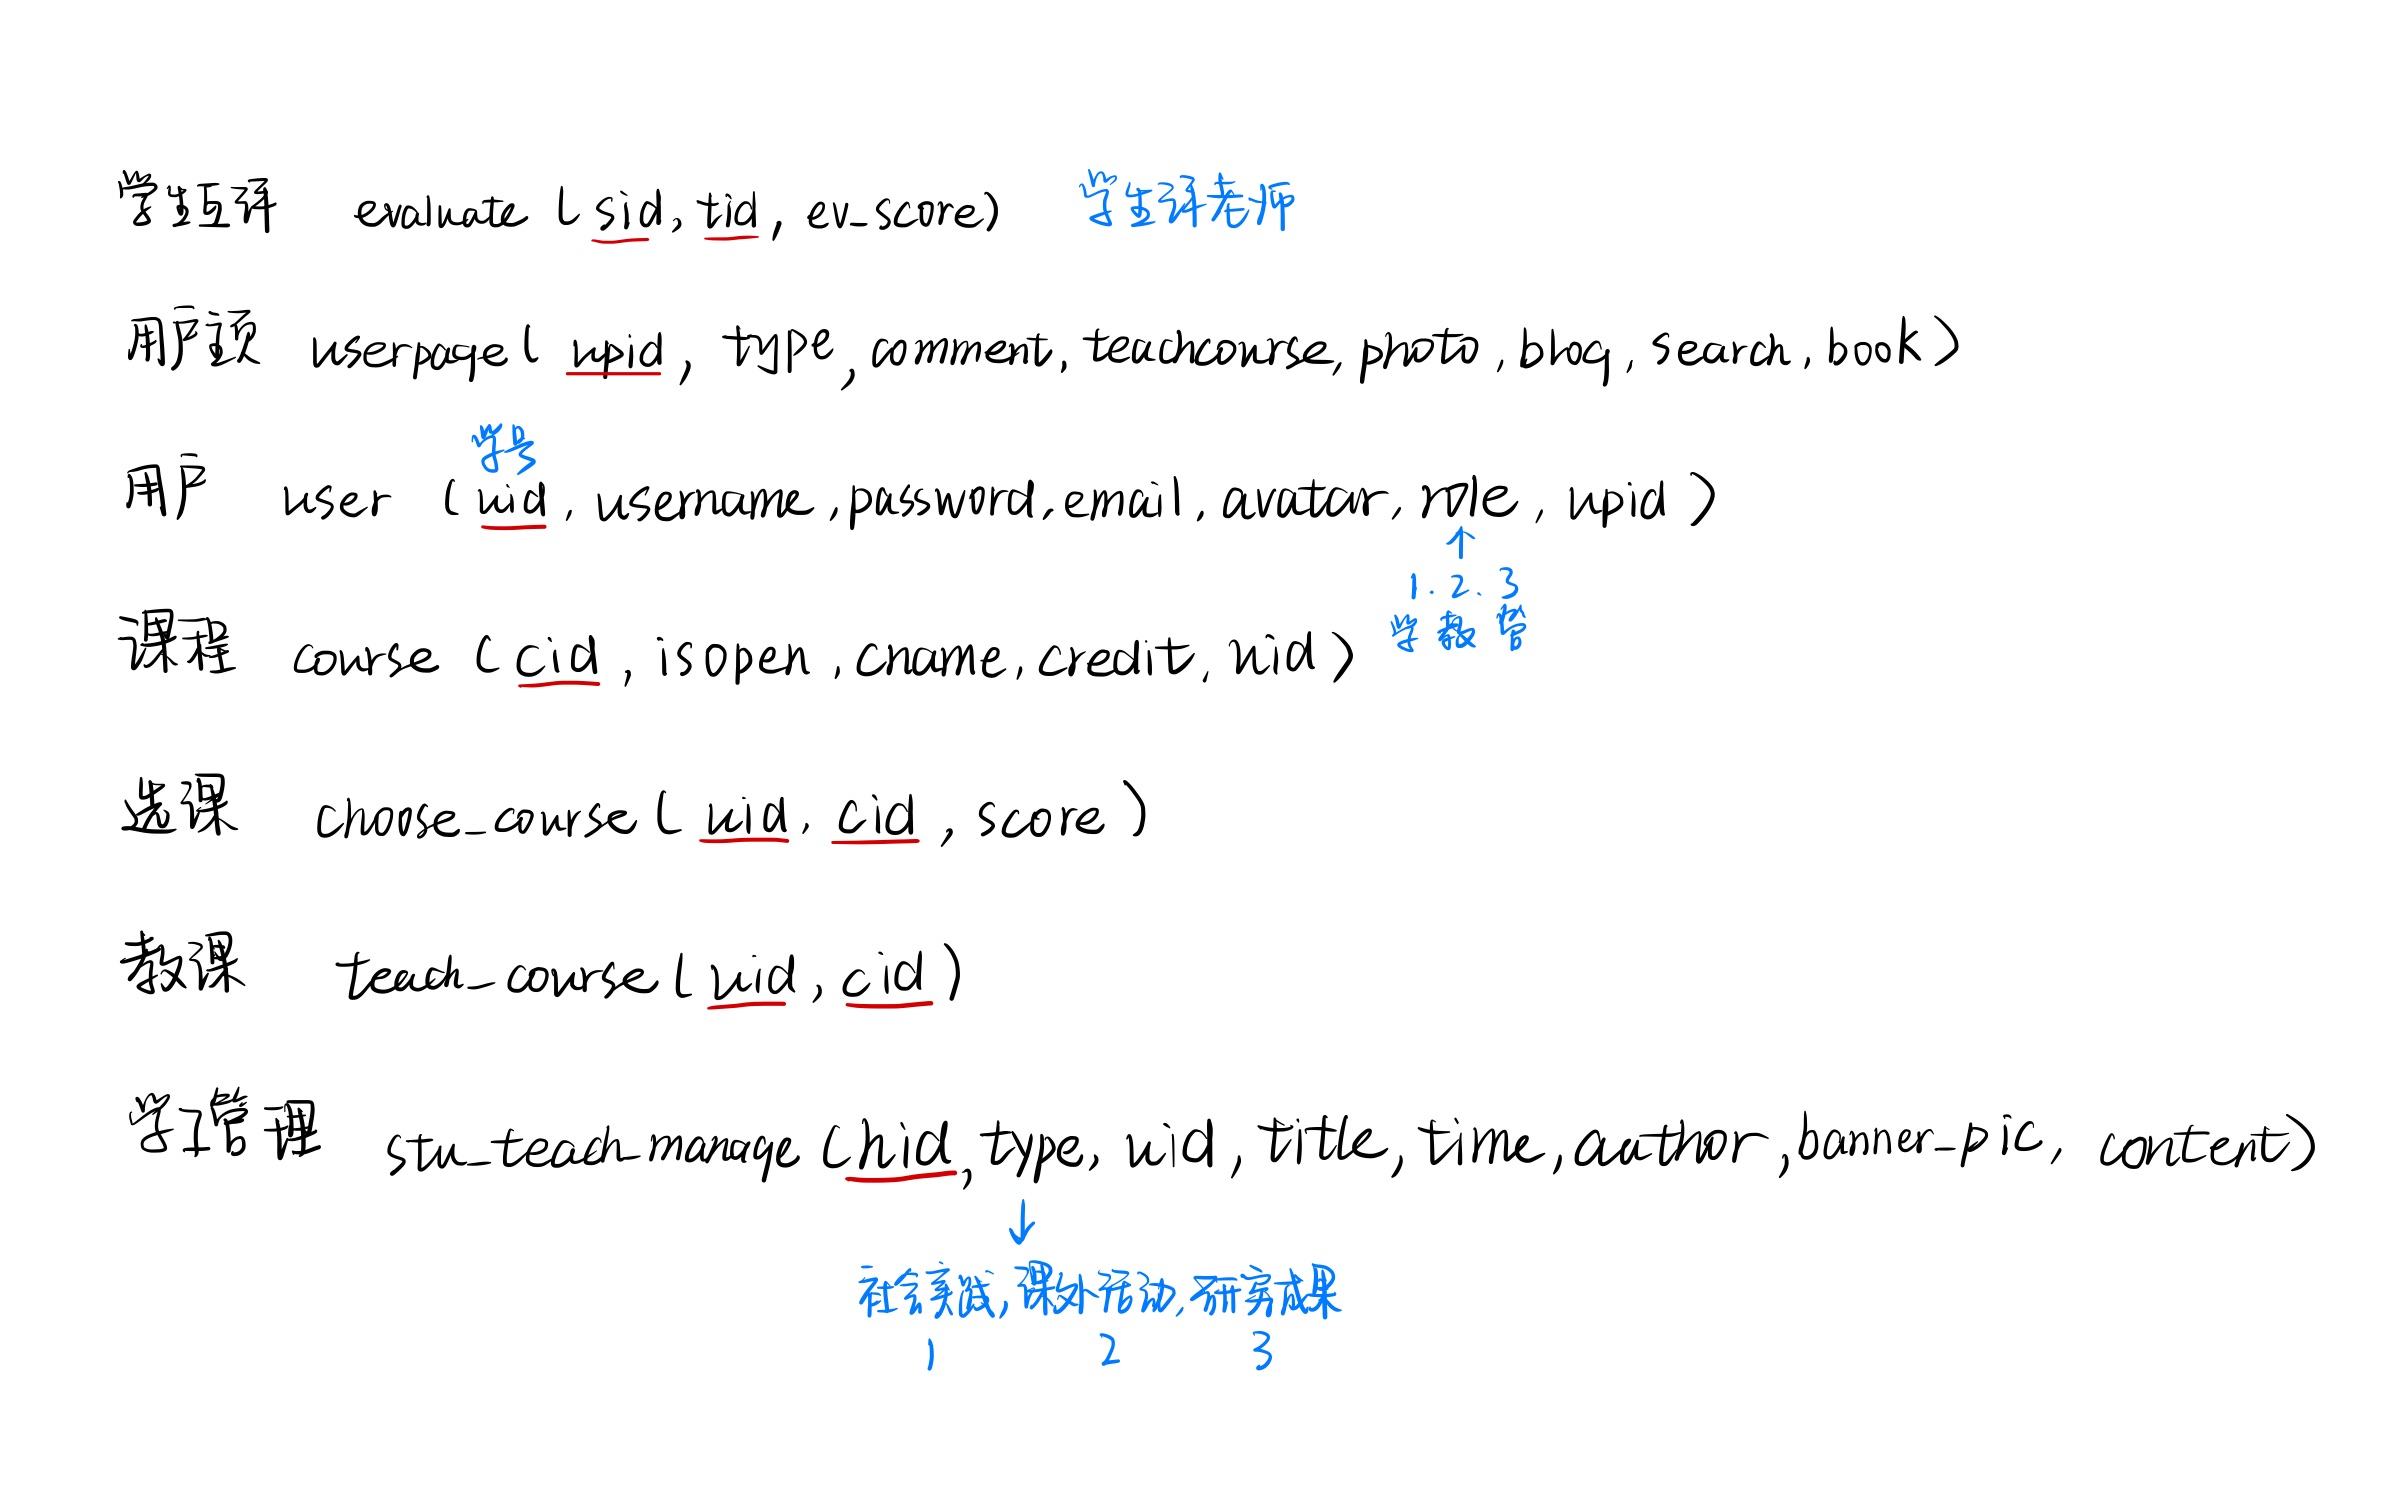 学生互评 evaluate (sid, tid, ev_score) 学生评老师
用户页 userpage( upid, type, comment, teachcourse, photo, blog, search, book)
学号
用户 user (uid, username, password, email, avatar, role, upid)
↑
1. 2. 3
学 教 管
课程 course (cid, isopen, cname, credit, uid)
选课 choose_course( uid, cid, score)
教课 teach_course( uid, cid)
学工管理 stu_teach_manage (hid, type, uid, title, time, author, banner_pic, content)
↓
社会实践, 课外活动, 研究成果
1 2 3